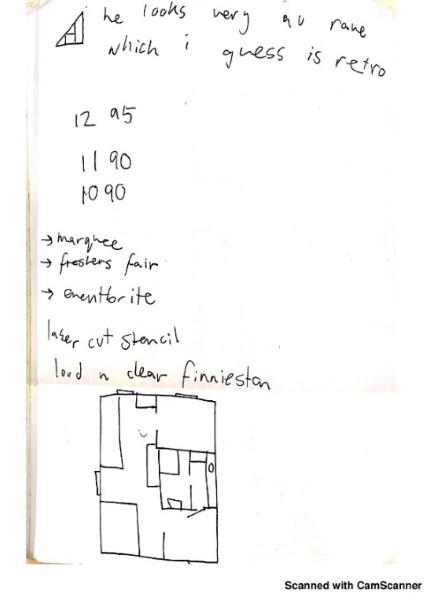 he looks very au rave
which i guess is retro
12 95
11 90
10 90
→ marquee
→ freshers fair
→ eventbrite
laser cut stencil
loud n clear finnieston
Scanned with CamScanner